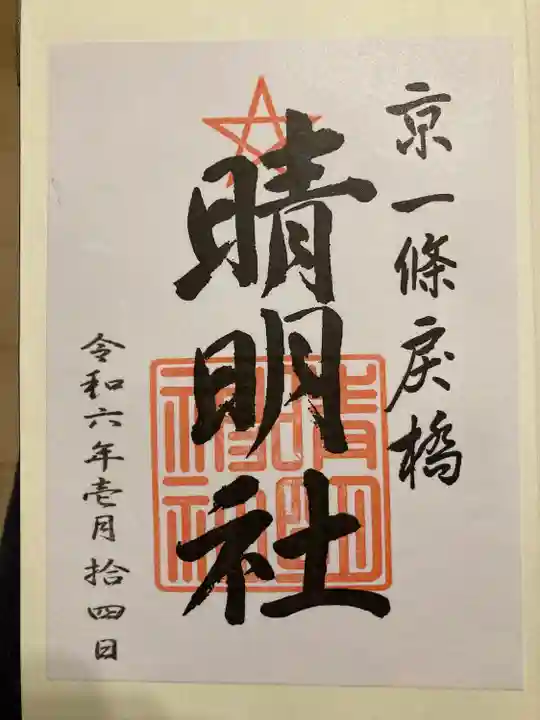 京一條戻橋
晴明社
令和六年壱月拾四日